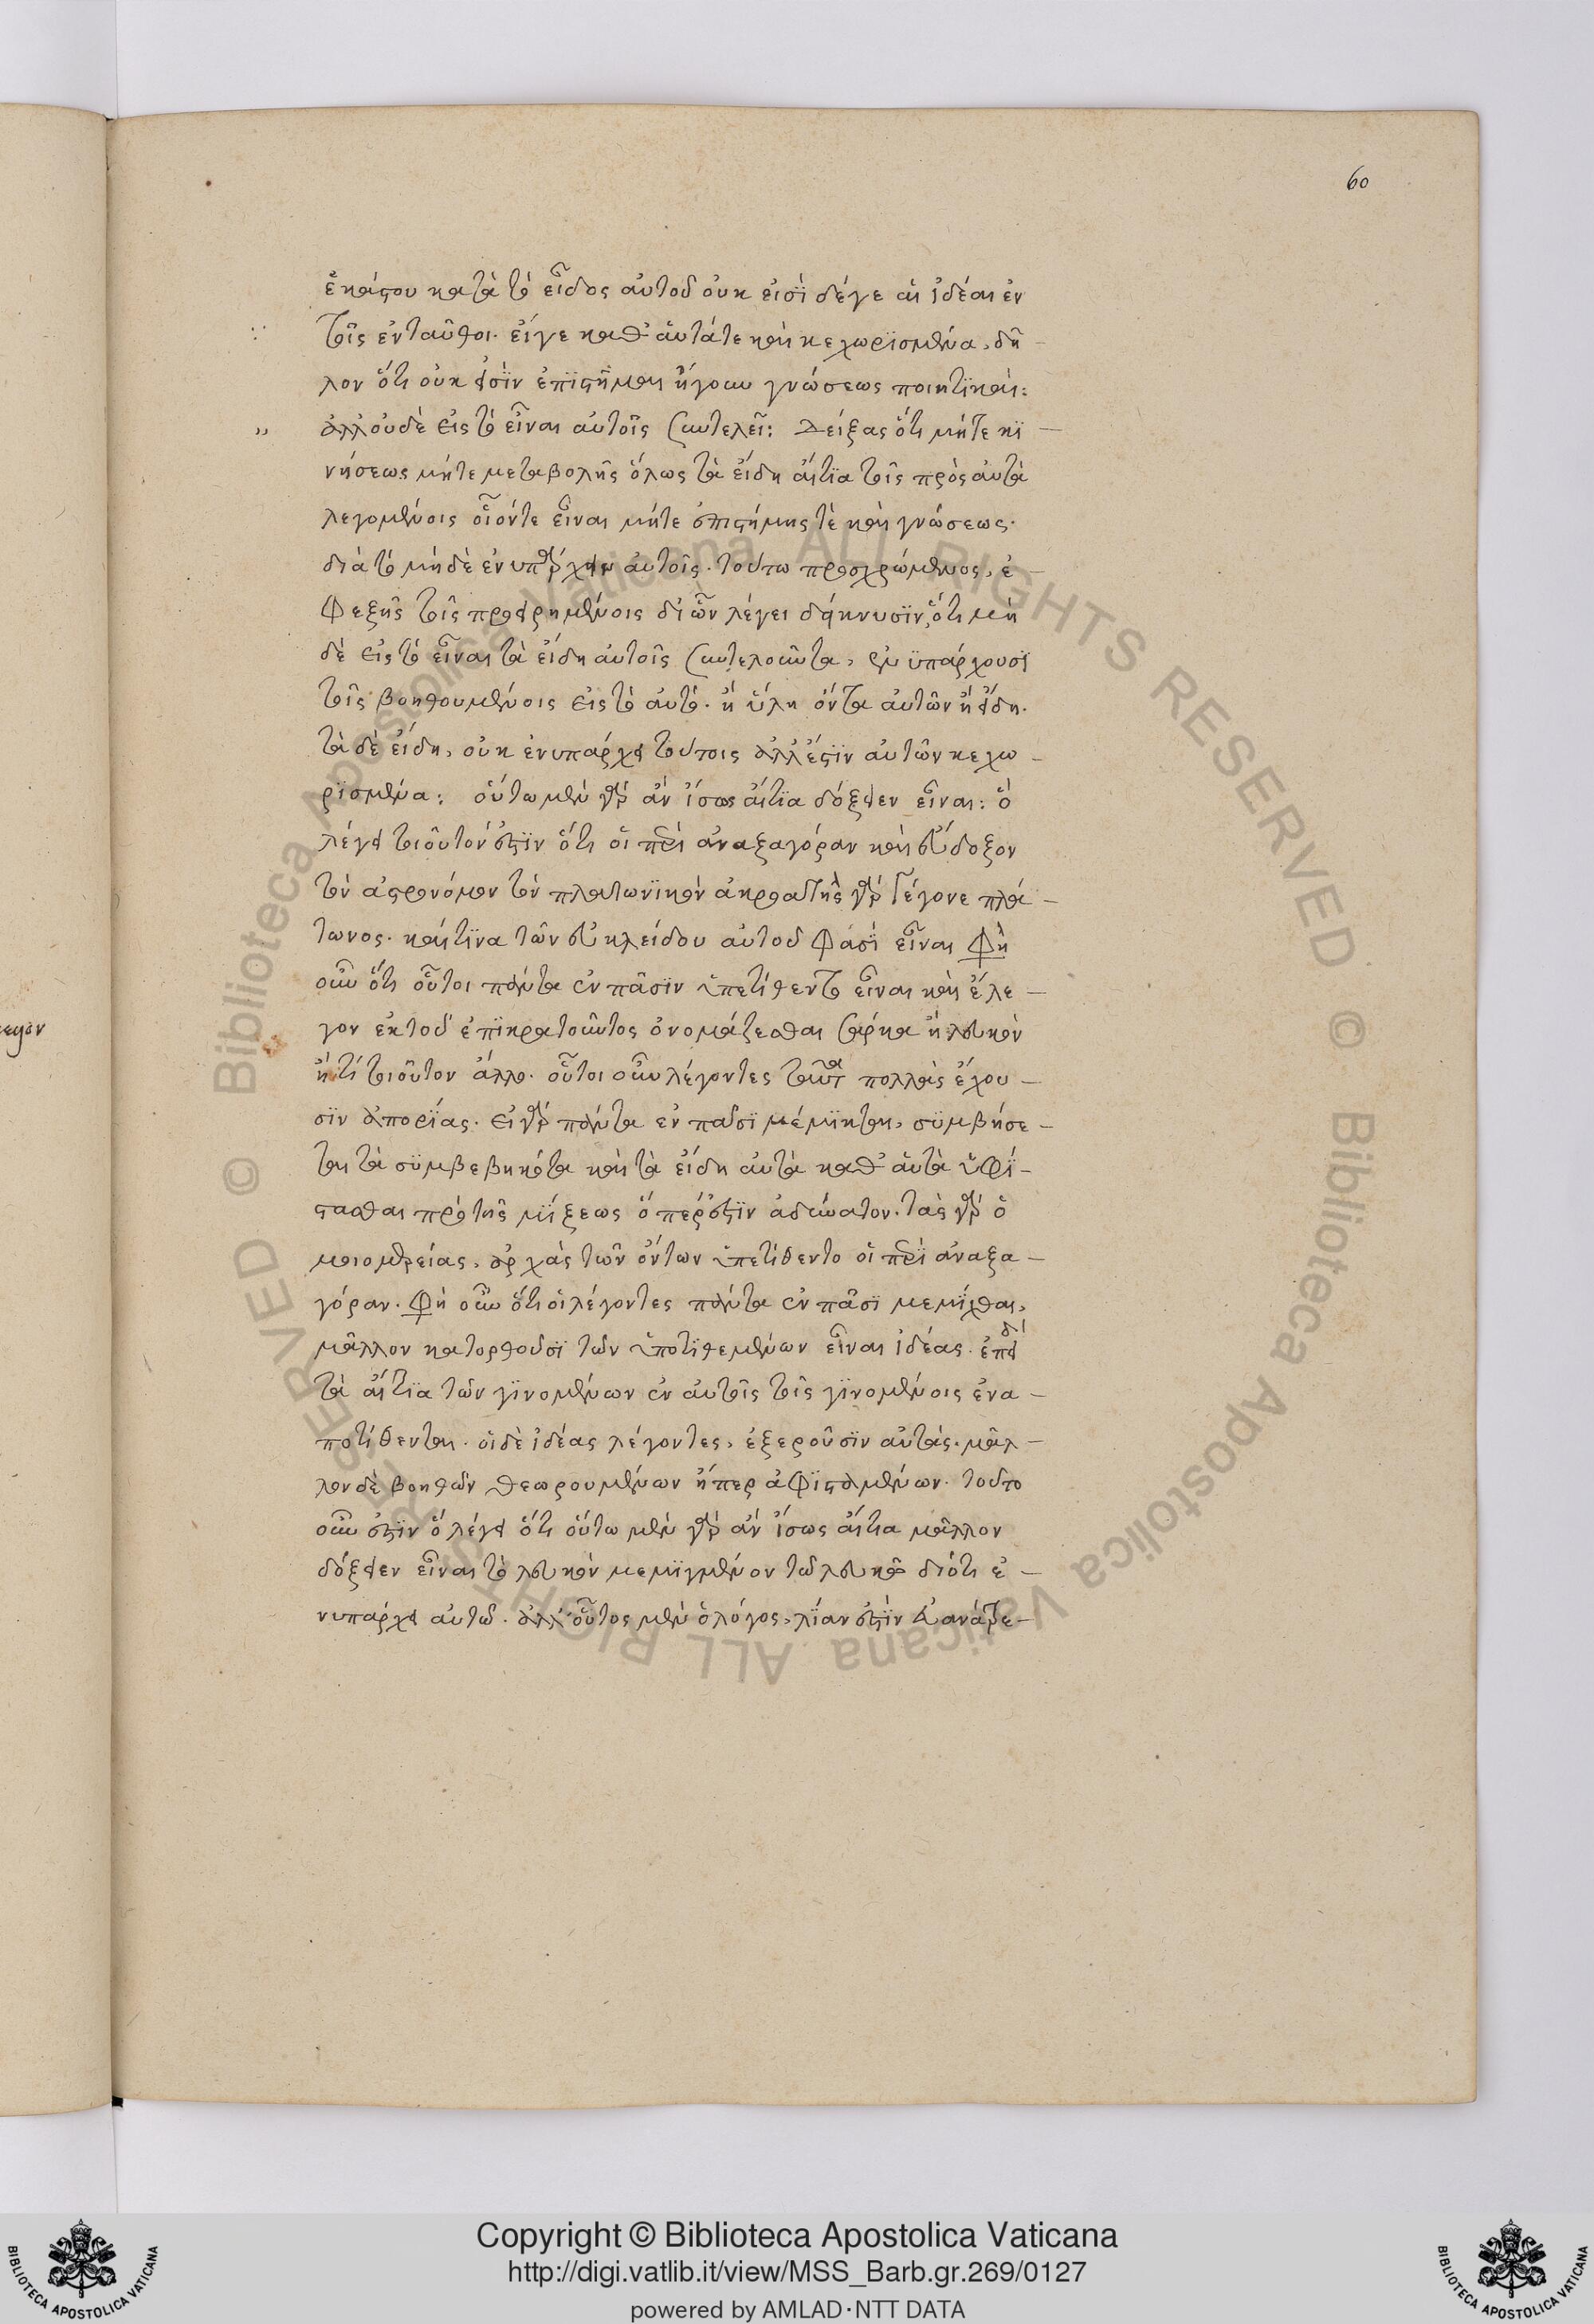 60
ἑκάστου κατὰ τὸ εἶδος αὐτοῦ οὐκ εἰσῒ δέγε αἱ ἰδέαι ἐν
τοῖς ἐνταῦθοι. εἴγε καθ' αὑτάτε καὶ κεχωρϊσμένα, δῆ
λον ὅτι οὐκ εἰσὶν ἐπϊστῆμαι ἤγουν γνώσεως ποιητϊκαὶ:
„ ἀλλ οὐδὲ εἰς τὸ εἶναι αὐτοῖς συντελεῖ: Δείξας ὅτι μήτε κϊ
νήσεως μήτε μεταβολῆς ὅλως τὰ εἴδη αἴτϊα τοῖς πρὸς αὐτὰ
λεγομένοις οἷόντε εἶναι μήτε ἐπιστήμης τὲ καὶ γνώσεως.
διὰ τὸ μήδὲ ἐνυπάρχειν αὐτοῖς. τούτω προσχρώμενος, ἐ
φεξῆς τοῖς προειρημένοις δι' ὧν λέγει δείκνυσϊν, ὅτι μὴ
δὲ εἰς τὸ εἶναι τὰ εἴδη αὐτοῖς συντελοῦντα, ἐνϋπάρχουσϊ
τοῖς βοηθουμένοις εἰς τὸ αὐτό. ἢ ὕλη ὄντα αὐτῶν ἢ εἴδη.
τὰ δὲ εἴδη, οὐκ ἐνυπάρχει τούτοις ἀλλ' ἔστϊν αὐτῶν κεχω
ρϊσμένα: οὕτω μὲν γὰρ ἂν ἴσως αἴτϊα δόξειεν εἶναι: ὃ
λέγει τοιοῦτόν ἐστϊν ὅτι οἱ περὶ ἀναξαγόραν καὶ εὔδοξον
τὸν ἀστρονόμον τὸν πλατωνϊκὸν ἀκροατὴς γὰρ γέγονε πλά
τωνος. καί τϊνα τῶν εὐκλείδου αὐτοῦ φασῒ εἶναι φὴ
οὖν ὅτι οὗτοι πάντα ἐν πᾶσϊν ὑπετίθεντο εἶναι καὶ ἔλε
γον ἐκ τοῦ ἐπϊκρατοῦντος ὀνομάζεσθαι σάρκα ἢ λευκὸν
ἤ τί τοιοῦτον ἄλλο. οὗτοι οὖν λέγοντες ταῦτα πολλὰς ἔχου
σϊν ἀπορίας. εἰ γὰρ πάντα ἐν πασϊ μέμϊκται, σϋμβήσε
ται τὰ σϋμβεβηκότα καὶ τὰ εἴδη αὐτὰ καθ' αὑτὰ ὑφϊ
στασθαι πρὸ τῆς μϊξεως ὅπερ ἐστϊν ἀδύνατον. τὰς γὰρ ὁ
μοιομερείας, ἀρχὰς τῶν ὄντων ὑπετίθεντο οἱ περὶ ἀναξα
γόραν. φὴ οὖν ὅτι οἱ λέγοντες πάντα ἐν πᾶσϊ μεμϊχθαι,
μᾶλλον κατορθοῦσϊ τῶν ὑποτϊθεμένων εἶναι ἰδέας. ἐπειδὴ
τὰ αἴτϊα τῶν γϊνομένων ἐν αὐτοῖς τοῖς γϊνομένοις ἐνα
ποτίθενται. οἱ δὲ ἰδέας λέγοντες, ἐξεροῦσϊν αὐτάς. μᾶλ
λον δὲ βοηθῶν θεωρουμένων ἤπερ ἀφϊσταμένων. τοῦτο
οὖν ἐστϊν ὃ λέγει ὅτι οὕτω μὲν γὰρ ἂν ἴσως αἴτια μᾶλλον
δόξειεν εἶναι τὸ λευκὸν μεμϊγμένον τῶ λευκῶ διότι ἐ
νυπάρχει αὐτῶ. ἀλλ' οὗτος μὲν ὁ λόγος, λΐαν ἐστϊν εὐανάτρε
Copyright © Biblioteca Apostolica Vaticana
http://digi.vatlib.it/view/MSS_Barb.gr.269/0127
powered by AMLAD·NTT DATA